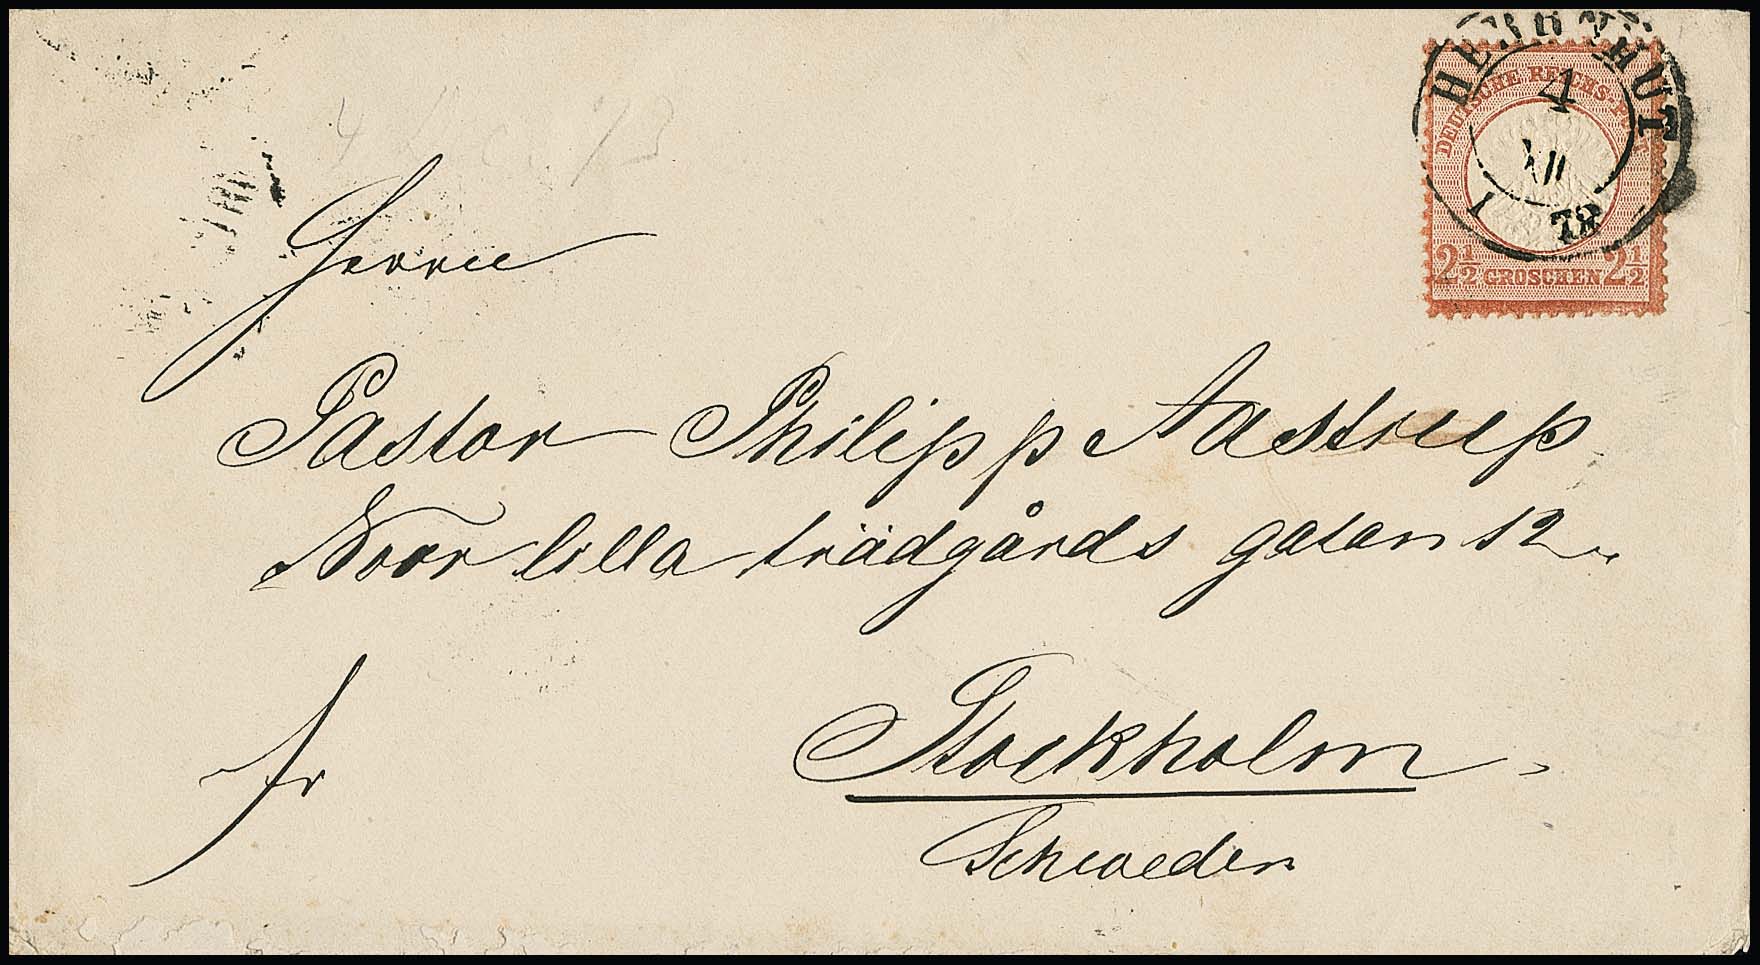 HERRNHUT
4
XII
I 73
DEUTSCHE REICHS-POST
2½ GROSCHEN 2½
4 Dec. 73
Herrn
Pastor Philipp Aastrup
Norr lilla trädgårds gatan 12.
Stockholm,
Schweden
fr